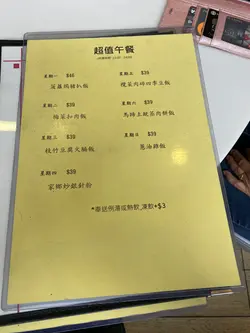 超值午餐
星期一 $48
菠蘿焗豬扒飯
星期二 $39
梅菜扣肉飯
星期三 $39
枝竹豆腐火腩飯
星期四 $39
家鄉炒銀針粉
星期五 $39
欖菜肉碎四季豆飯
星期六 $39
馬蹄土魷蒸肉餅飯
星期日 $39
蔥油雞飯
*奉送例湯或熱飲,凍飲+$3